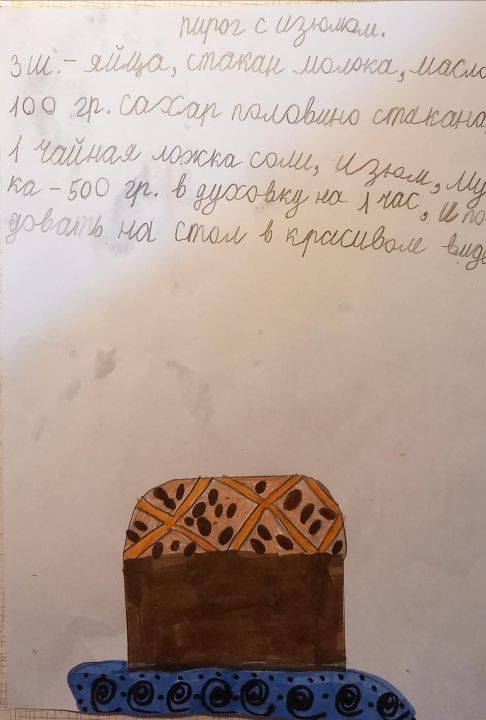 пирог с изюмом.
3 ш. - яйца, стакан молока, масло
100 гр. сахар половино стакана,
1 чайная ложка соли, изюм, му
ка - 500 гр. в духовку на 1 час, и по
довать на стол в красивом виде